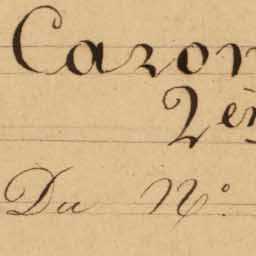 Cazon
2èm
Du N°